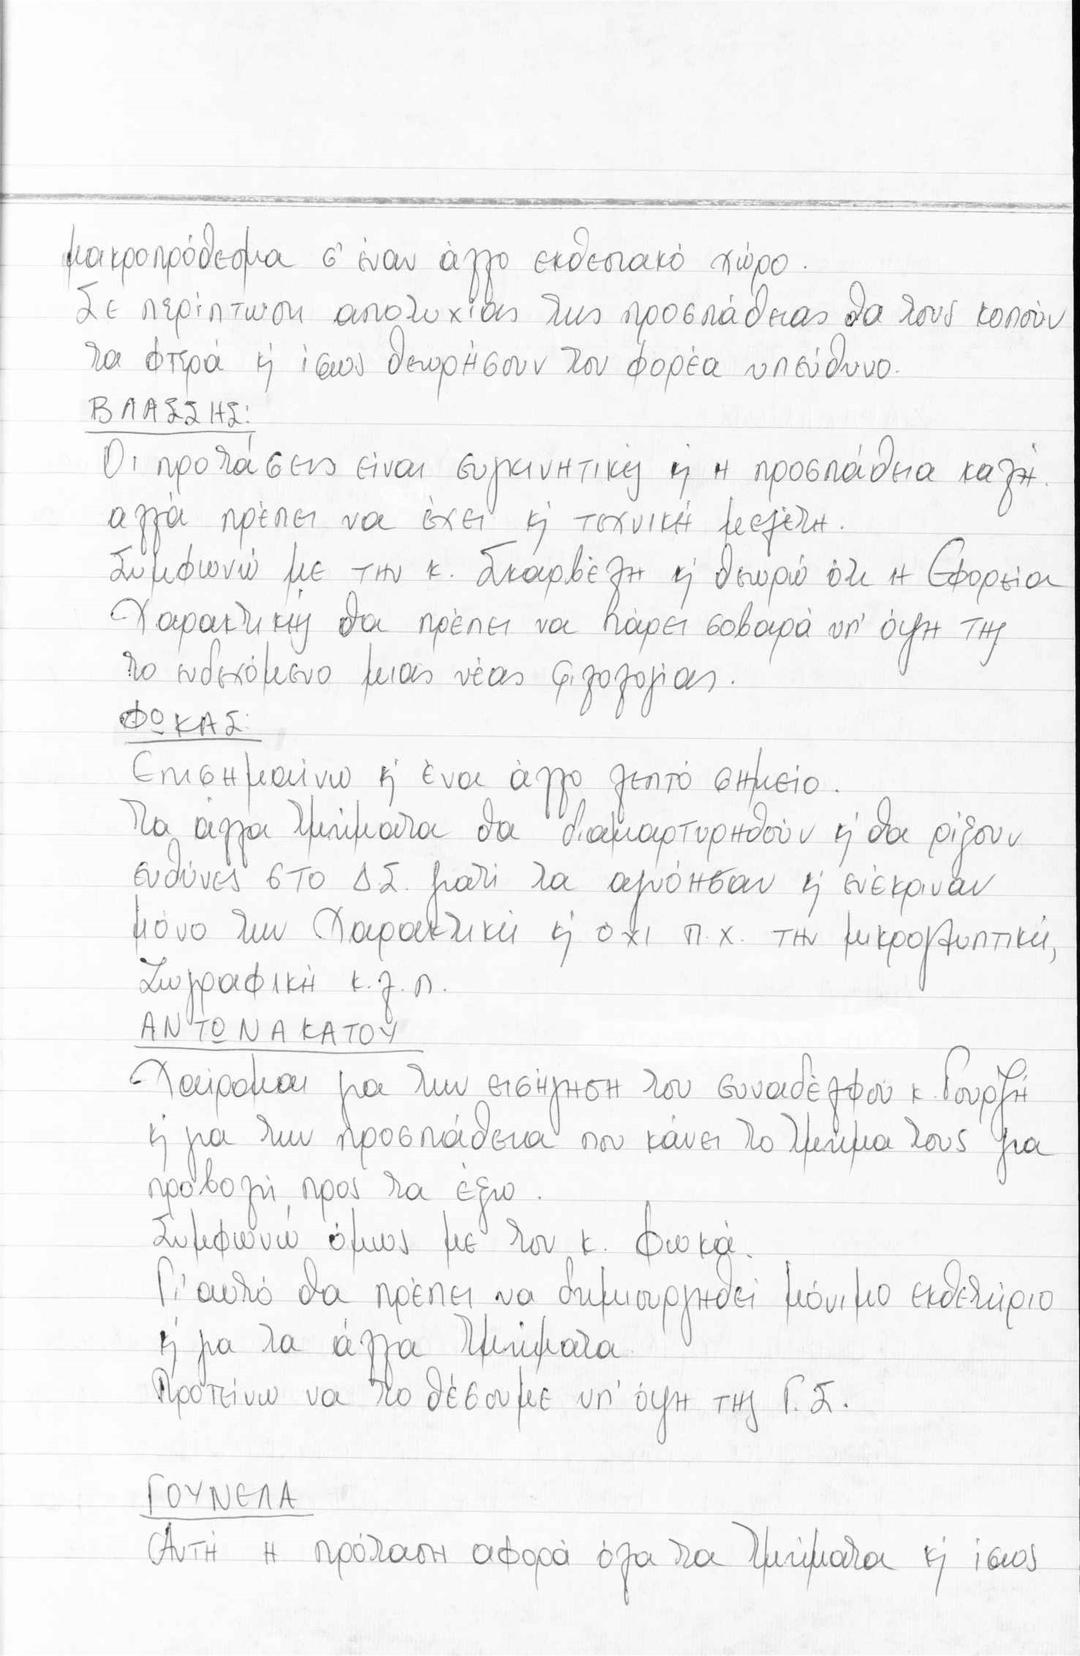 μακροπρόθεσμα σ' έναν άλλο εκθεσιακό χώρο.
Σε περίπτωση αποτυχίας της προσπάθειας θα τους κοπούν
τα φτερά κ' ίσως θεωρήσουν τον φορέα υπεύθυνο.
ΒΛΑΣΣΗΣ:
Οι προτάσεις είναι συγκινητικές κ' η προσπάθεια καλή.
αλλά πρέπει να έχει κ' τεχνική μελέτη.
Συμφωνώ με την κ. Σκαρβέλη κ' θεωρώ ότι η Εφορεία
Χαρακτικής θα πρέπει να πάρει σοβαρά υπ' όψη της
το ενδεχόμενο μιας νέας φιλολογίας.
ΦΩΚΑΣ:
Επισημαίνω κ' ένα άλλο λεπτό σημείο.
Τα άλλα Τμήματα θα διαμαρτυρηθούν κ' θα ρίξουν
ευθύνες στο Δ.Σ. γιατί τα αγνόησαν κ' ενέκριναν
μόνο την Χαρακτική κ' όχι π.χ. την μικρογλυπτική,
Ζωγραφική κ.λ.π.
ΑΝΤΩΝΑΚΑΤΟΥ
Χαίρομαι για την εισήγηση του συναδέλφου κ. Γουρζή
κ' για την προσπάθεια που κάνει το Τμήμα τους για
προβολή προς τα έξω.
Συμφωνώ όμως με τον κ. Φωκά.
Γι' αυτό θα πρέπει να δημιουργηθεί μόνιμο εκθετήριο
κ' για τα άλλα Τμήματα
Προτείνω να το θέσουμε υπ' όψη της Γ.Σ.
ΓΟΥΝΕΛΑ
Αυτή η πρόταση αφορά όλα τα Τμήματα κ' ίσως